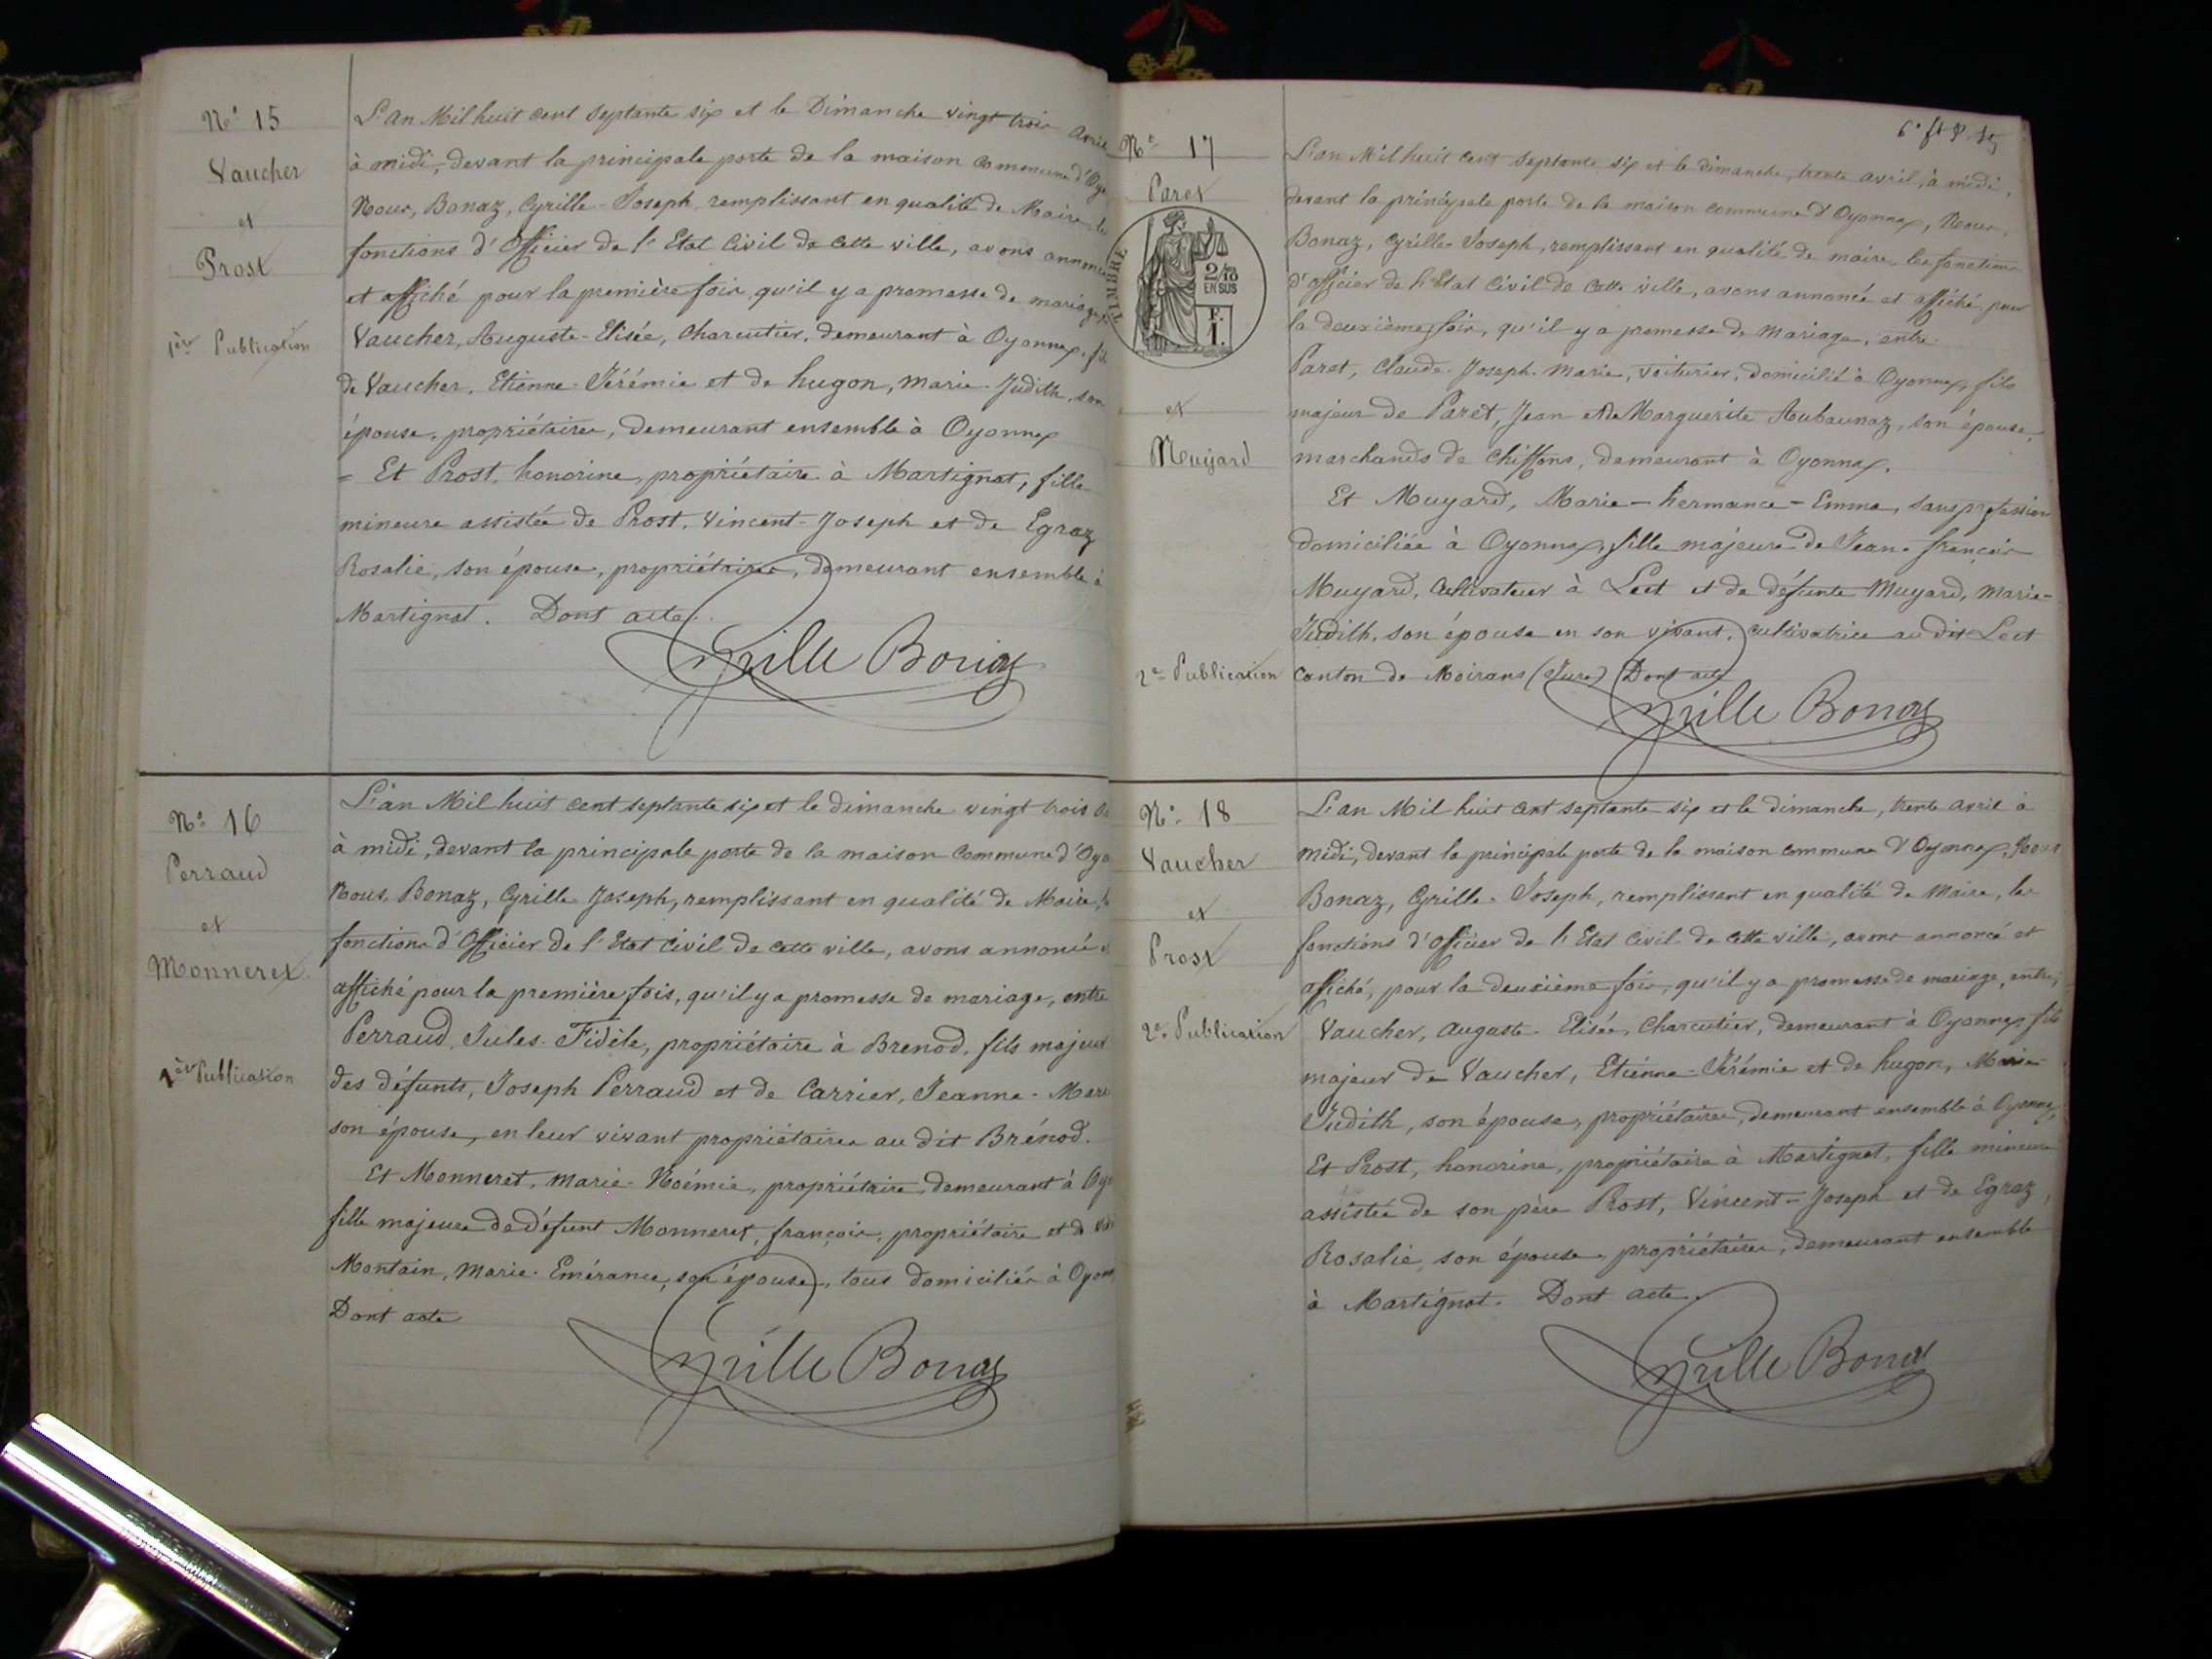 N° 15
Vaucher
et
Prost
1ère Publication
L'an Mil huit cent septante six et le Dimanche vingt trois avril
à midi, devant la principale porte de la maison commune d'Oyo
Nous, Bonaz, Cyrille-Joseph, remplissant en qualité de Maire les
fonctions d'Officier de l'Etat Civil de cette ville, avons annoncé
et affiché pour la première fois qu'il y a promesse de mariage
Vaucher, Auguste-Elisée, Charcutier, demeurant à Oyonnax, fils
de Vaucher, Etienne-Jérémie et de hugon, Marie-Judith, son
épouse, propriétaires, demeurant ensemble à Oyonnax
= Et Prost, honorine, propriétaire à Martignat, fille
mineure assistée de Prost, Vincent-Joseph et de Egraz
Rosalie, son épouse, propriétaires, demeurant ensemble à
Martignat. Dont acte.
Cyrille Bonaz
N° 16
Perraud
et
Monneret
1ère Publication
L'an Mil huit cent septante six et le dimanche vingt trois a
à midi, devant la principale porte de la maison Commune d'Oyo
Nous, Bonaz, Cyrille Joseph, remplissant en qualité de Maire, l
fonctions d'Officier de l'Etat Civil de cette ville, avons annoncé e
affiché pour la première fois, qu'il y a promesse de mariage, entre
Perraud, Jules-Fidèle, propriétaire à Brenod, fils majeur
des défunts, Joseph Perraud et de Carrier, Jeanne-Marie
son épouse, en leur vivant propriétaires au dit Brénod.
Et Monneret, Marie-Noémie, propriétaire, demeurant à Oyo
fille majeure de défunt Monneret, françois, propriétaire et de
Montain, Marie-Emérance, son épouse, tous domiciliés à Oyonn
Dont acte
Cyrille Bonaz
N° 17
Paret
TIMBRE
2/10
EN SUS
F.
1.
et
Muyard
2e Publication
L'an Mil huit cent septante six et le dimanche, trente avril, à midi,
devant la principale porte de la maison commune d'Oyonnax, Nous,
Bonaz, Cyrille-Joseph, remplissant en qualité de maire, les fonctions
d'officier de l'Etat Civil de cette ville, avons annoncé et affiché, pour
la deuxième fois, qu'il y a promesse de Mariage, entre
Paret, Claude-Joseph-Marie, voiturier, domicilié à Oyonnax, fils
majeur de Paret, Jean et de Marguerite Aubaunaz, son épouse,
marchands de chiffons, demeurant à Oyonnax.
Et Muyard, Marie-hermance-Emma, sans profession
domiciliée à Oyonnax, fille majeure de Jean-françois
Muyard, Cultivateur à Lect et de défunte Muyard, Marie-
Judith, son épouse en son vivant, cultivatrice au dit Lect
canton de Moirans (Jura) Dont acte
Cyrille Bonaz
N° 18
Vaucher
et
Prost
2e Publication
L'an Mil huit cent septante six et le dimanche, trente avril à
midi, devant la principale porte de la maison commune d'Oyonnax, Nous
Bonaz, Cyrille-Joseph, remplissant en qualité de Maire, les
fonctions d'officier de l'Etat Civil de cette ville, avons annoncé et
affiché, pour la deuxième fois, qu'il y a promesse de mariage, entre,
Vaucher, Auguste-Elisée, Charcutier, demeurant à Oyonnax, fils
majeur de Vaucher, Etienne-Jérémie et de hugon, Marie
Judith, son épouse, propriétaires, demeurant ensemble à Oyonnax,
Et Prost, honorine, propriétaire à Martignat, fille mineure
assistée de son père Prost, Vincent-Joseph et de Egraz,
Rosalie, son épouse, propriétaires, demeurant ensemble
à Martignat. Dont acte.
Cyrille Bonaz